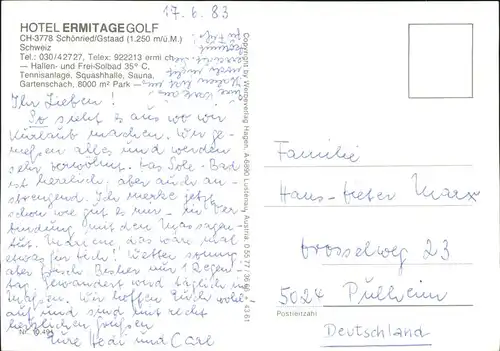 17.6.83
HOTEL ERMITAGE GOLF
CH-3778 Schönried/Gstaad (1.250 m/ü.M.)
Schweiz
Tel.: 030/42727, Telex: 922213 ermi ch
— Hallen- und Frei-Solbad 35° C,
Tennisanlage, Squashhalle, Sauna,
Gartenschach, 8000 m² Park —
Ihr Lieben!
So sieht es aus wo wir
Urlaub machen. Wir ge-
nießen alles und werden
sehr verwöhnt. Das Sole-Bad
ist herrlich, aber auch an-
strengend. Ich merke jetzt
schon wie gut es mir in Ver-
bindung mit den Massagen
tut. das wäre mal
etwas für Dich! Wetter sonnig
aber frisch. Bisher nur 1 Regen-
tag. Gewandert wird täglich in
Maßen. Wir hoffen Euch wohl-
auf und sind mit recht
herzlichen Grüßen
Eure Hedi und Carl
Copyright by Werbeverlag Hagen, A 6890 Lustenau, Austria, 0 55 77 /
Familie
Hans-Peter Marx
Drosselweg 23
5024 Pulheim
Postleitzahl
Deutschland